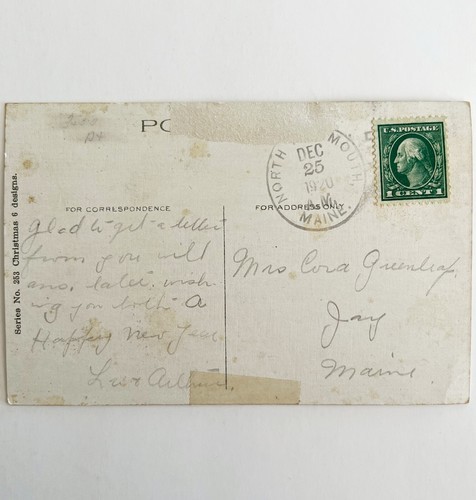 PO
Series No. 253 Christmas 6 designs.
FOR CORRESPONDENCE
FOR ADDRESS ONLY
NORTH MOUTH,
DEC
25
1920
A.M.
MAINE.
U.S. POSTAGE
1 CENT 1
Glad to get a letter
from you will
ans. later. wish-
ing you both A
Happy New Year
Mrs Cora Greenleaf.
Jay
Maine.